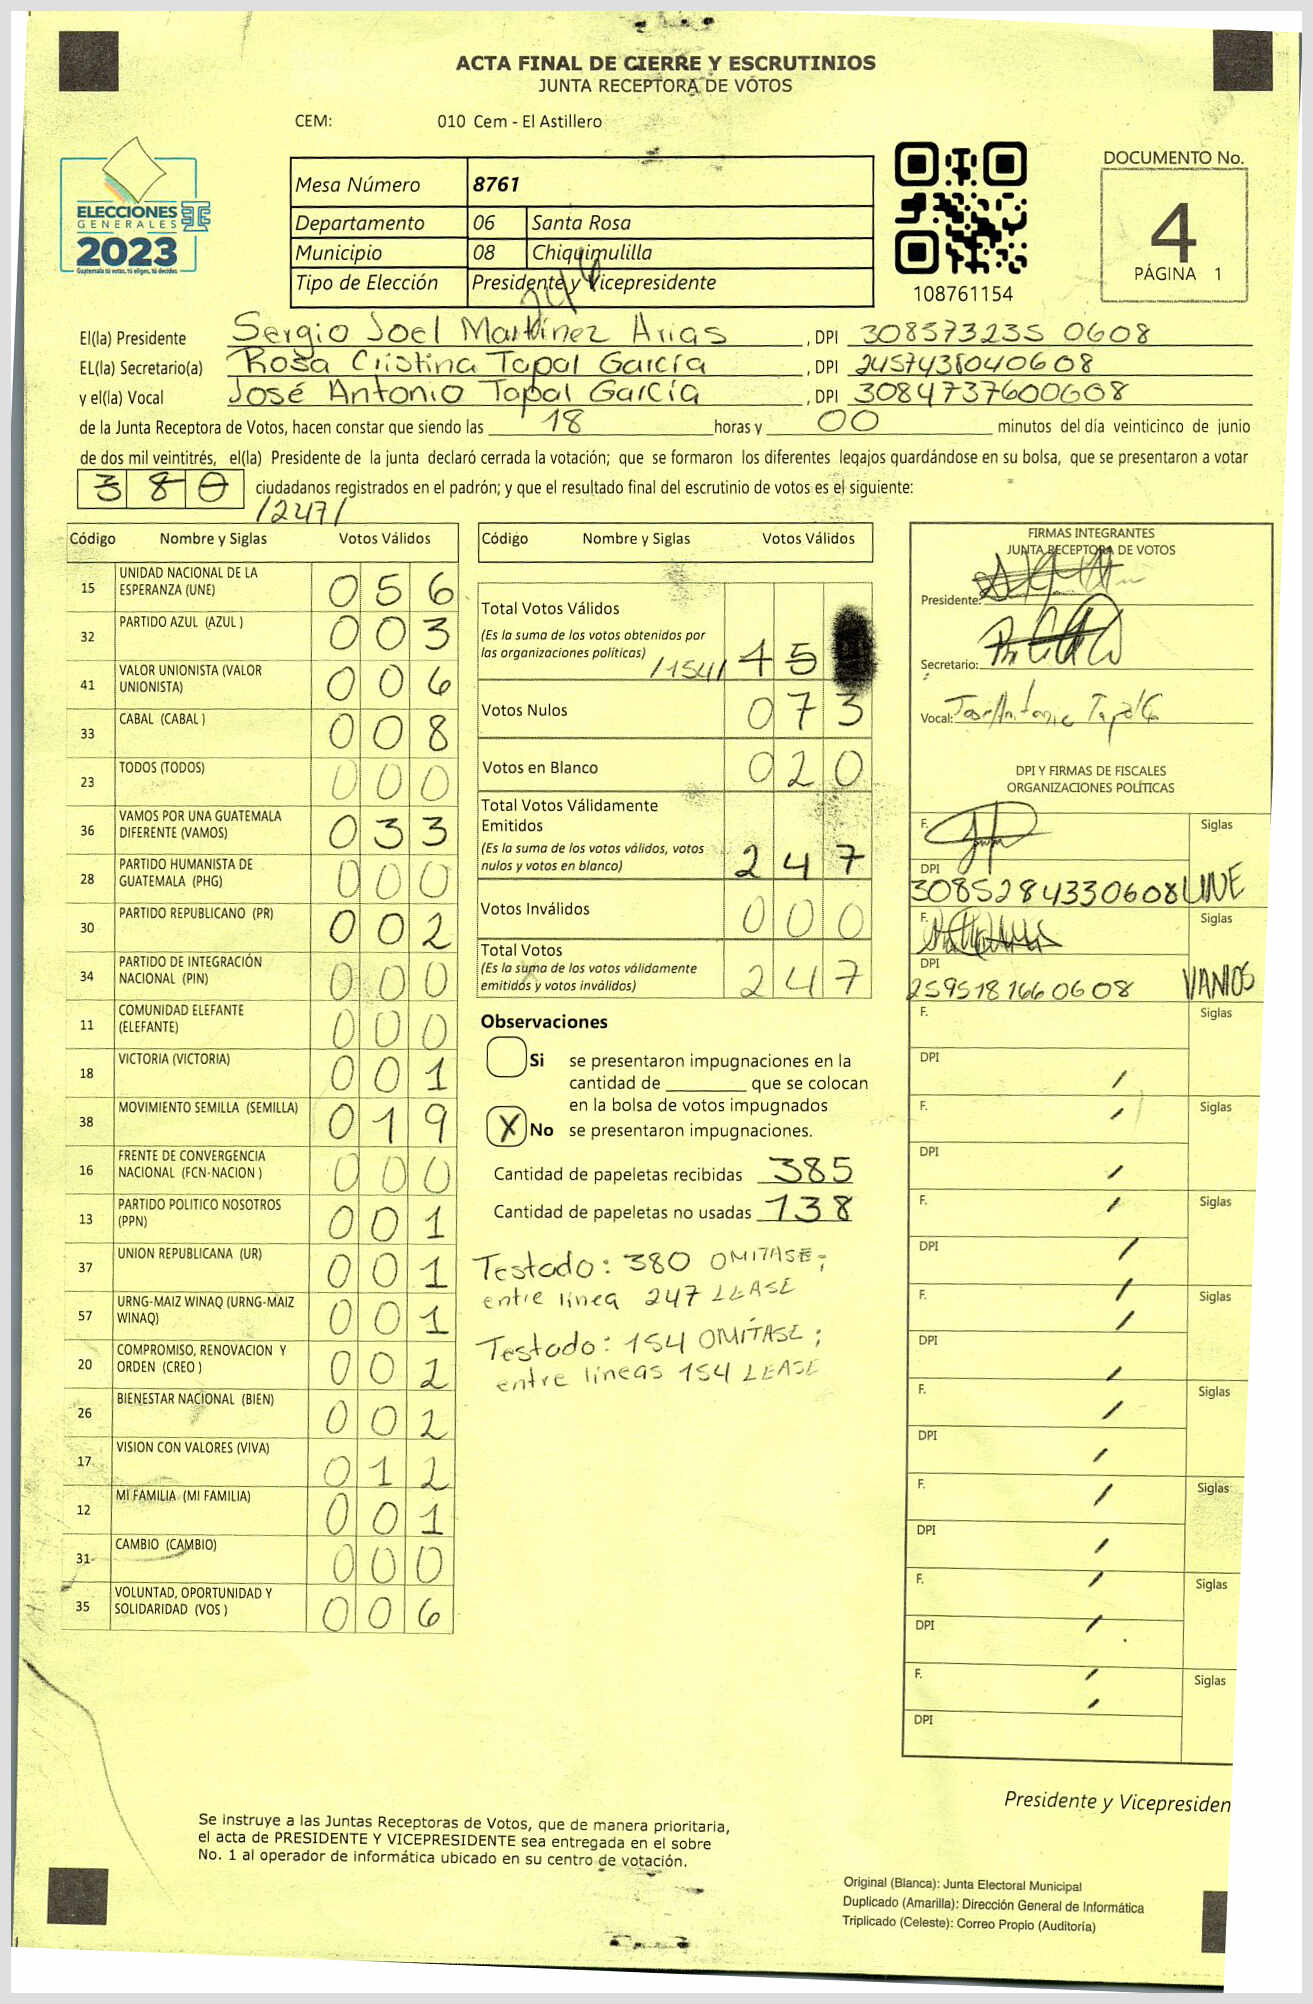 ACTA FINAL DE CIERRE Y ESCRUTINIOS
JUNTA RECEPTORA DE VOTOS
CEM: 010 Cem - El Astillero
ELECCIONES
GENERALES
2023
Guatemala tú votas, tú eliges, tú decides
Mesa Número 8761
Departamento 06 Santa Rosa
Municipio 08 Chiquimulilla
Tipo de Elección Presidente y Vicepresidente
108761154
DOCUMENTO No.
4
PÁGINA 1
El(la) Presidente Sergio Joel Martínez Arias, DPI 308573235 0608
EL(la) Secretario(a) Rosa Cristina Tapal García, DPI 2457438040608
y el(la) Vocal José Antonio Tapal García, DPI 3084737600608
de la Junta Receptora de Votos, hacen constar que siendo las 18 horas y 00 minutos del día veinticinco de junio
de dos mil veintitrés, el(la) Presidente de la junta declaró cerrada la votación; que se formaron los diferentes legajos guardándose en su bolsa, que se presentaron a votar
380 ciudadanos registrados en el padrón; y que el resultado final del escrutinio de votos es el siguiente:
/247/
Código Nombre y Siglas Votos Válidos
15 UNIDAD NACIONAL DE LA ESPERANZA (UNE) 056
32 PARTIDO AZUL (AZUL ) 003
41 VALOR UNIONISTA (VALOR UNIONISTA) 006
33 CABAL (CABAL ) 008
23 TODOS (TODOS) 000
36 VAMOS POR UNA GUATEMALA DIFERENTE (VAMOS) 033
28 PARTIDO HUMANISTA DE GUATEMALA (PHG) 000
30 PARTIDO REPUBLICANO (PR) 002
34 PARTIDO DE INTEGRACIÓN NACIONAL (PIN) 000
11 COMUNIDAD ELEFANTE (ELEFANTE) 000
18 VICTORIA (VICTORIA) 001
38 MOVIMIENTO SEMILLA (SEMILLA) 019
16 FRENTE DE CONVERGENCIA NACIONAL (FCN-NACION ) 000
13 PARTIDO POLITICO NOSOTROS (PPN) 001
37 UNION REPUBLICANA (UR) 001
57 URNG-MAIZ WINAQ (URNG-MAIZ WINAQ) 001
20 COMPROMISO, RENOVACION Y ORDEN (CREO ) 002
26 BIENESTAR NACIONAL (BIEN) 002
17 VISION CON VALORES (VIVA) 012
12 MI FAMILIA (MI FAMILIA) 001
31 CAMBIO (CAMBIO) 000
35 VOLUNTAD, OPORTUNIDAD Y SOLIDARIDAD (VOS ) 006
Código Nombre y Siglas Votos Válidos
Total Votos Válidos
(Es la suma de los votos obtenidos por
las organizaciones políticas) /154/ 15
Votos Nulos 073
Votos en Blanco 020
Total Votos Válidamente
Emitidos
(Es la suma de los votos válidos, votos
nulos y votos en blanco) 247
Votos Inválidos 000
Total Votos
(Es la suma de los votos válidamente
emitidos y votos inválidos) 247
Observaciones
Si se presentaron impugnaciones en la
cantidad de ________ que se colocan
en la bolsa de votos impugnados
X No se presentaron impugnaciones.
Cantidad de papeletas recibidas 385
Cantidad de papeletas no usadas 138
Testado: 380 OMITASE;
entre línea 247 LEASE
Testado: 154 OMÍTASE;
entre líneas 154 LEASE
FIRMAS INTEGRANTES
JUNTA RECEPTORA DE VOTOS
Presidente:
Secretario:
Vocal: Jose Antonio Tapal G
DPI Y FIRMAS DE FISCALES
ORGANIZACIONES POLÍTICAS
F. Siglas
DPI
3085284330608 UNE
F. Siglas
DPI
2595181660608 VAMOS
F. Siglas
DPI
F. Siglas
DPI
F. Siglas
DPI
F. Siglas
DPI
F. Siglas
DPI
F. Siglas
DPI
F. Siglas
DPI
F. Siglas
DPI
Presidente y Vicepresiden
Se instruye a las Juntas Receptoras de Votos, que de manera prioritaria,
el acta de PRESIDENTE Y VICEPRESIDENTE sea entregada en el sobre
No. 1 al operador de informática ubicado en su centro de votación.
Original (Blanca): Junta Electoral Municipal
Duplicado (Amarilla): Dirección General de Informática
Triplicado (Celeste): Correo Propio (Auditoría)